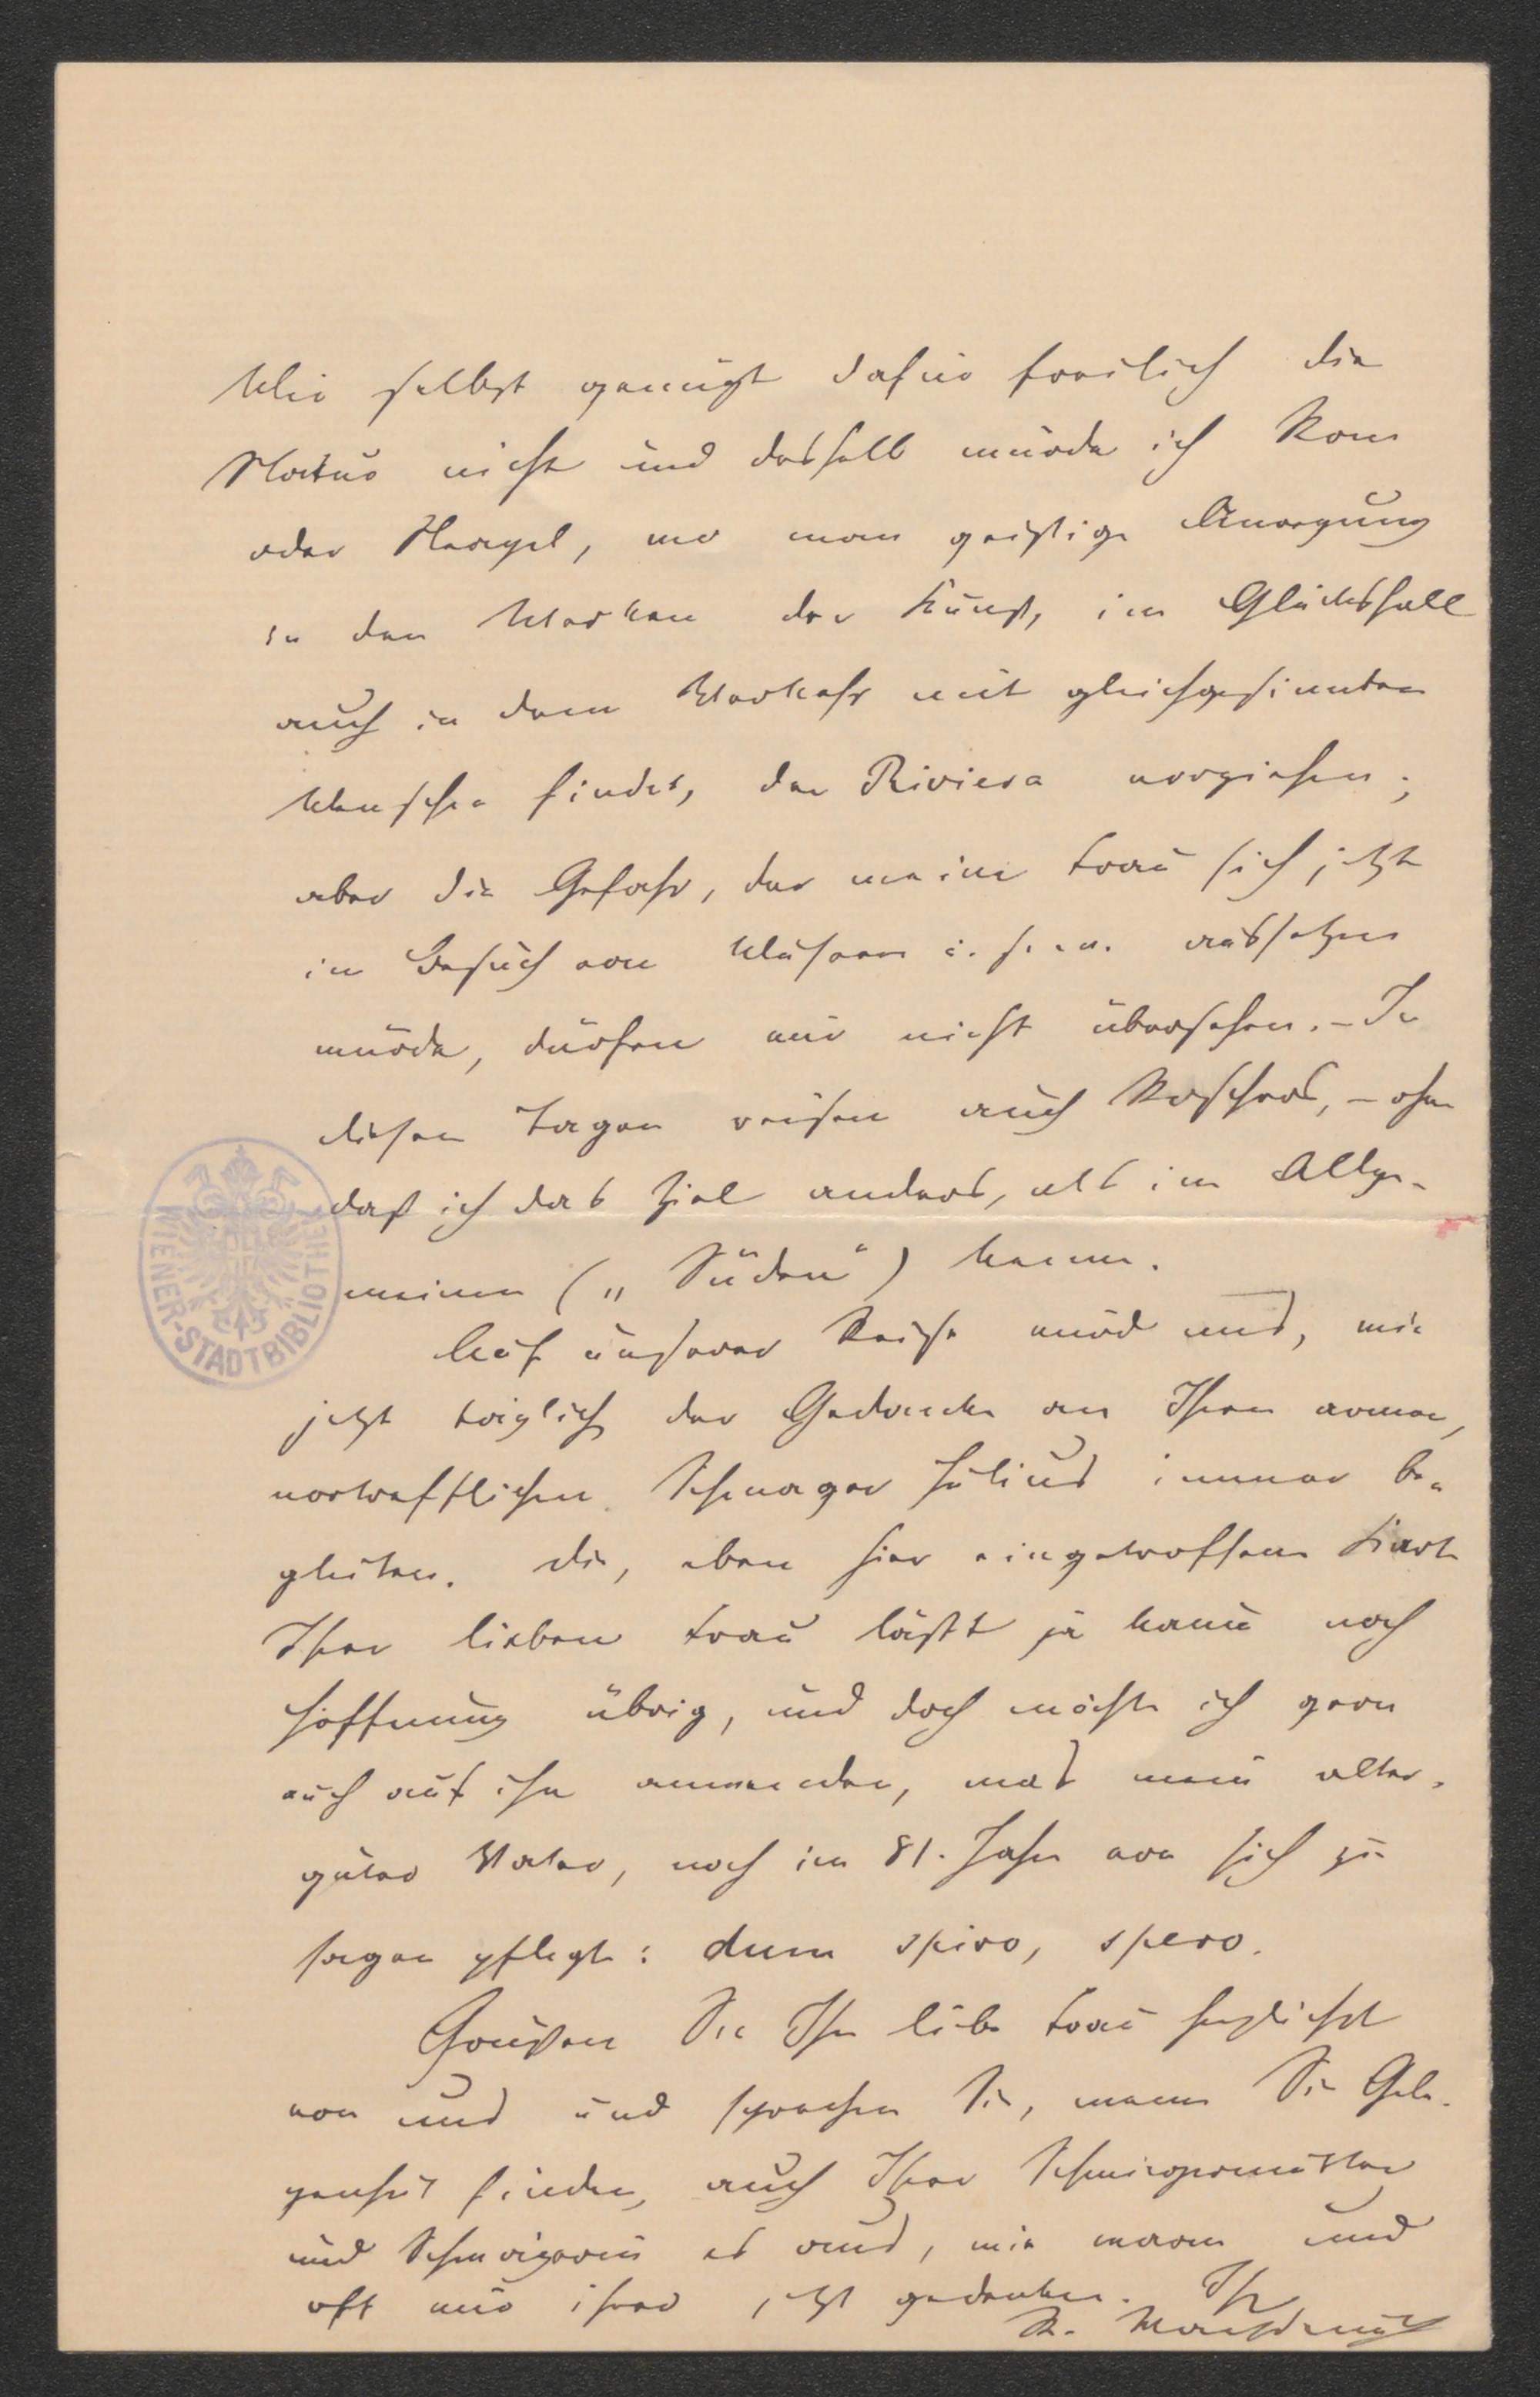 Mir selbst genügt dafür freilich die
Natur nicht und deshalb würde ich Rom
oder Neapel, wo man geistige Anregung
in den Werken der Kunst, im Glücksfall
auch in dem Verkehr mit gleichgesinnten
Menschen findet, der Riviera vorziehen;
aber die Gefahr, der meine Frau sich jetzt
im Besuch von Museen u. s. w. aussetzen
würde, dürfen wir nicht übersehen. – In
diesen Tagen reisen auch Roschers, – ohne
daß ich das Ziel anders, als im Allge-
meinen („Süden“) kenne.
Auf unserer Reise wird uns, wie
jetzt täglich der Gedanke an Ihren armen,
vortrefflichen Schwager Julius immer be-
gleiten. Die, eben hier eingetroffene Karte
Ihrer lieben Frau läßt ja kaum noch
Hoffnung übrig, und doch möchte ich gern
auch auf ihn anwenden, was mein alter,
guter Vater, noch im 81. Jahre von sich zu
sagen pflegte: dum spiro, spero.
Grüßen Sie Ihre liebe Frau herzlichst
von uns und sprechen Sie, wenn Sie Gele-
genheit finden, auch Ihrer Schwiegermutter
und Schwägerin es aus, wie warm und
oft wir ihrer jetzt gedenken. Ihr
R.
WIENER-STADTBIBLIOTHEK